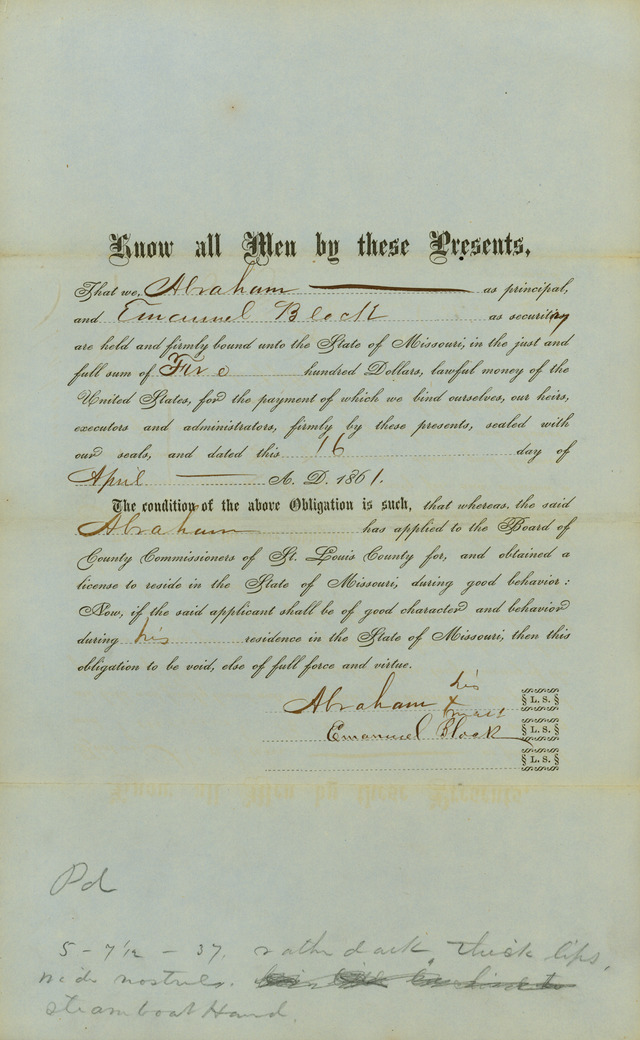 Know all Men by these Presents,
That we, Abraham as principal,
and Emanuel Block as security
are held and firmly bound unto the State of Missouri, in the just and
full sum of Five hundred Dollars, lawful money of the
United States, for the payment of which we bind ourselves, our heirs,
executors and administrators, firmly by these presents, sealed with
our seals, and dated this 16 day of
April A. D. 1861.
The condition of the above Obligation is such, that whereas, the said
Abraham has applied to the Board of
County Commissioners of St. Louis County for, and obtained a
license to reside in the State of Missouri, during good behavior:
Now, if the said applicant shall be of good character and behavior
during his residence in the State of Missouri, then this
obligation to be void, else of full force and virtue.
his
Abraham X L. S.
mark
Emanuel Block L. S.
L. S.
Pd
5 - 7 1/2 - 37. rather dark, thick lips,
wide nostrils.
steamboat Hand.